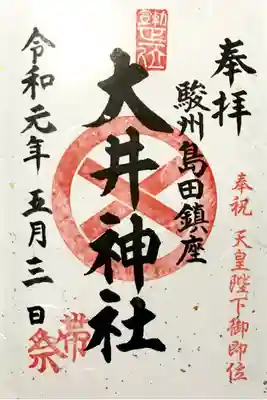 奉拝
奉祝 天皇陛下御即位
駿州島田鎮座
大井神社
令和元年 五月三日
帯祭